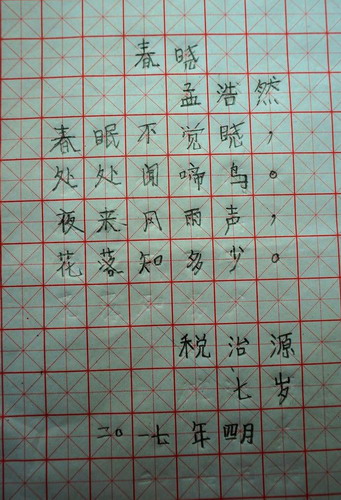 春晓
孟浩然
春眠不觉晓，
处处闻啼鸟。
夜来风雨声，
花落知多少。
税治源
七岁
二〇一七年四月